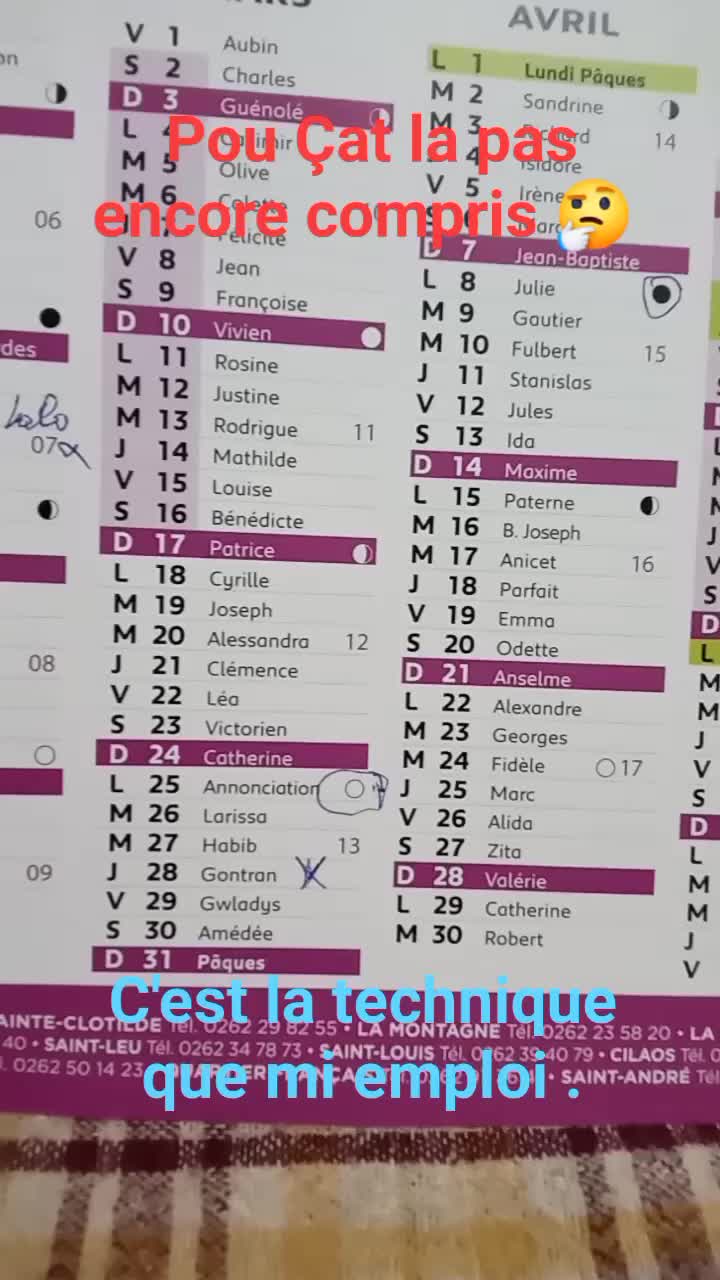 AVRIL
V 1 Aubin
S 2 Charles
D 3 Guénolé
L 4
M 5 Olive
M 6 Colette
J 7 Félicité
V 8 Jean
S 9 Françoise
D 10 Vivien
L 11 Rosine
M 12 Justine
M 13 Rodrigue 11
J 14 Mathilde
V 15 Louise
S 16 Bénédicte
D 17 Patrice
L 18 Cyrille
M 19 Joseph
M 20 Alessandra 12
J 21 Clémence
V 22 Léa
S 23 Victorien
D 24 Catherine
L 25 Annonciation
M 26 Larissa
M 27 Habib 13
J 28 Gontran
V 29 Gwladys
S 30 Amédée
D 31 Pâques
L 1 Lundi Pâques
M 2 Sandrine
M 3 Richard 14
4 Isidore
V 5 Irène
D 7 Jean-Baptiste
L 8 Julie
M 9 Gautier
M 10 Fulbert 15
J 11 Stanislas
V 12 Jules
S 13 Ida
D 14 Maxime
L 15 Paterne
M 16 B. Joseph
M 17 Anicet 16
J 18 Parfait
V 19 Emma
S 20 Odette
D 21 Anselme
L 22 Alexandre
M 23 Georges
M 24 Fidèle 17
J 25 Marc
V 26 Alida
S 27 Zita
D 28 Valérie
L 29 Catherine
M 30 Robert
06
des
07
08
09
Pou Çat la pas
encore compris 🤔
C'est la technique
que mi emploi .
AINTE-CLOTILDE Tél. 0262 29 82 55 • LA MONTAGNE Tél. 0262 23 58 20 • LA
40 • SAINT-LEU Tél. 0262 34 78 73 • SAINT-LOUIS Tél. 0262 39 40 79 • CILAOS Tél. 0
. 0262 50 14 23 • SAINT-ANDRÉ Tél